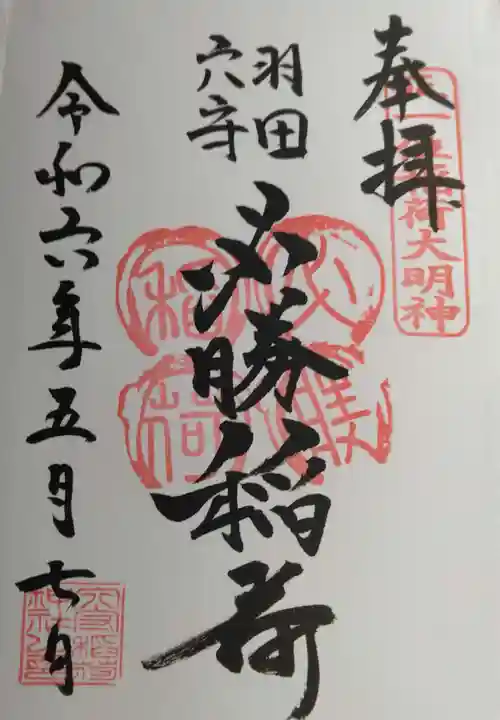 奉拝
荷大明神
羽田
穴守
必勝稲荷
必勝
稲荷
令和六年五月七日